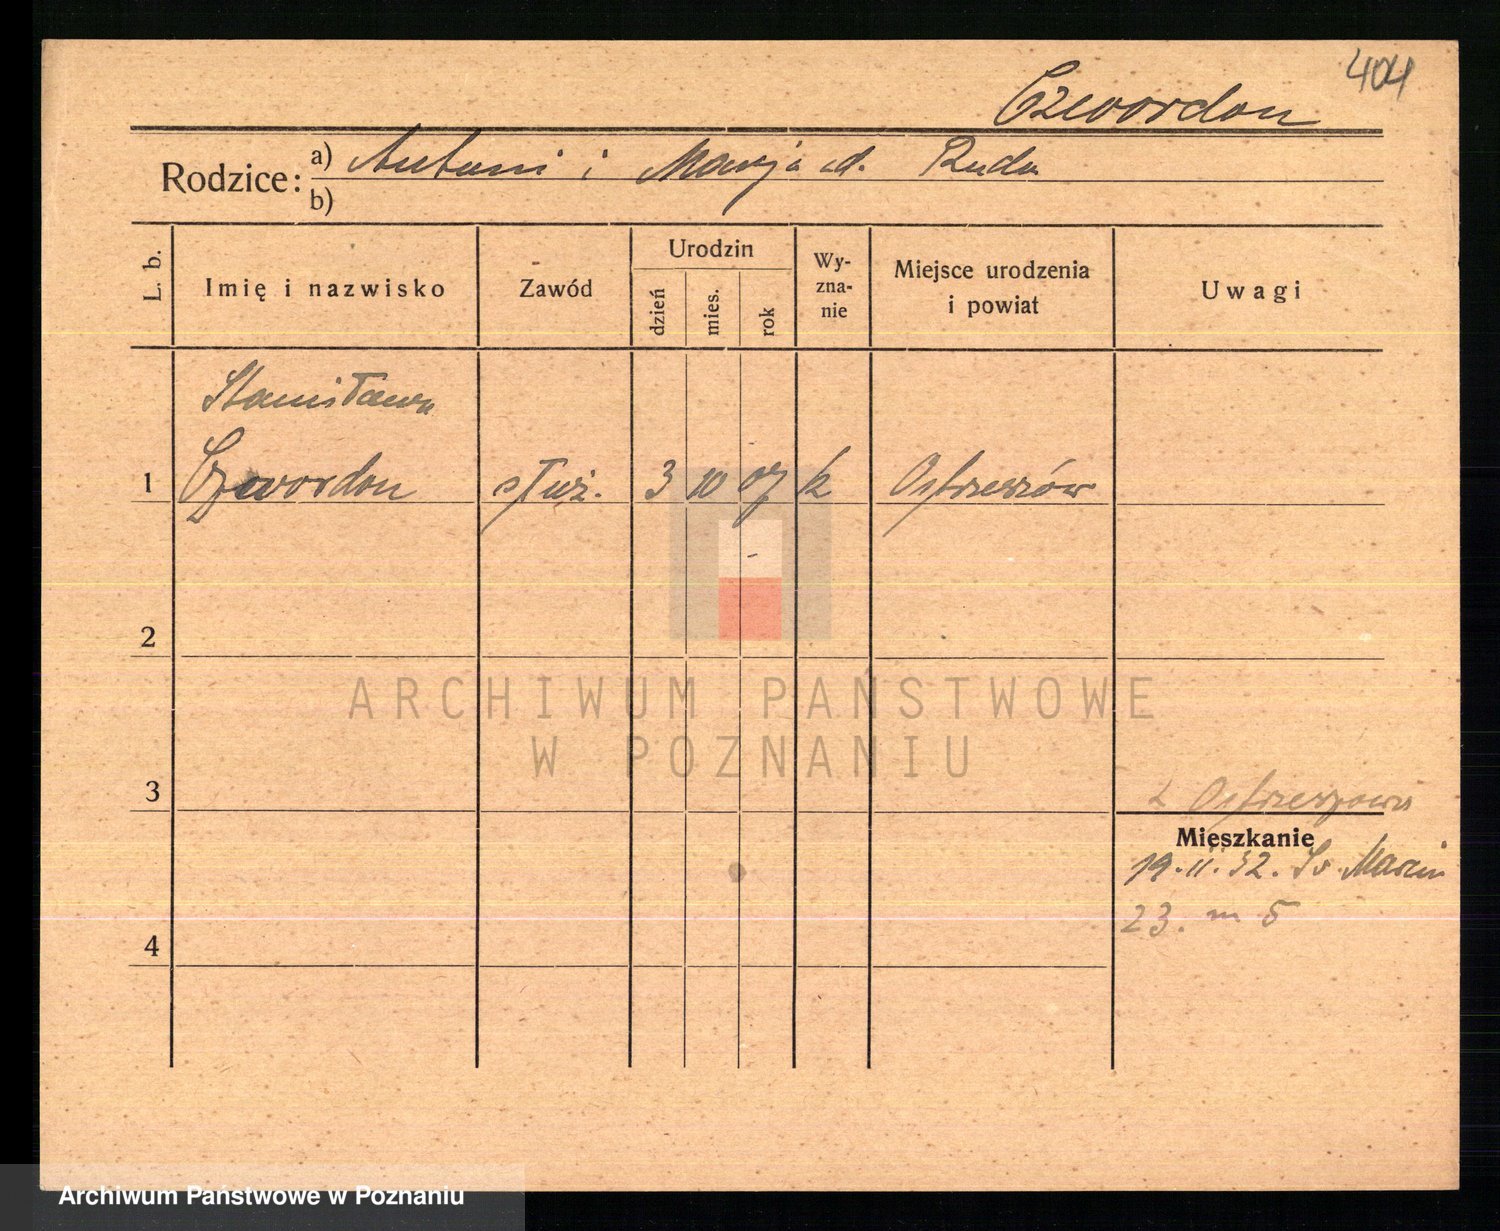 404
Czwordon
Rodzice: a) Antoni i Marja d. Ruda
b)
L. b.
Imię i nazwisko
Zawód
Urodzin
dzień
mies.
rok
Wy-
zna-
nie
Miejsce urodzenia
i powiat
Uwagi
Stanisława
1 Czwordon służ. 3 10 07 k Ostrzeszów
2
ARCHIWUM PAŃSTWOWE
W POZNANIU
3
z Ostrzeszowa
Mieszkanie
19.II.32. Św. Marcin
23. m 5
4
Archiwum Państwowe w Poznaniu